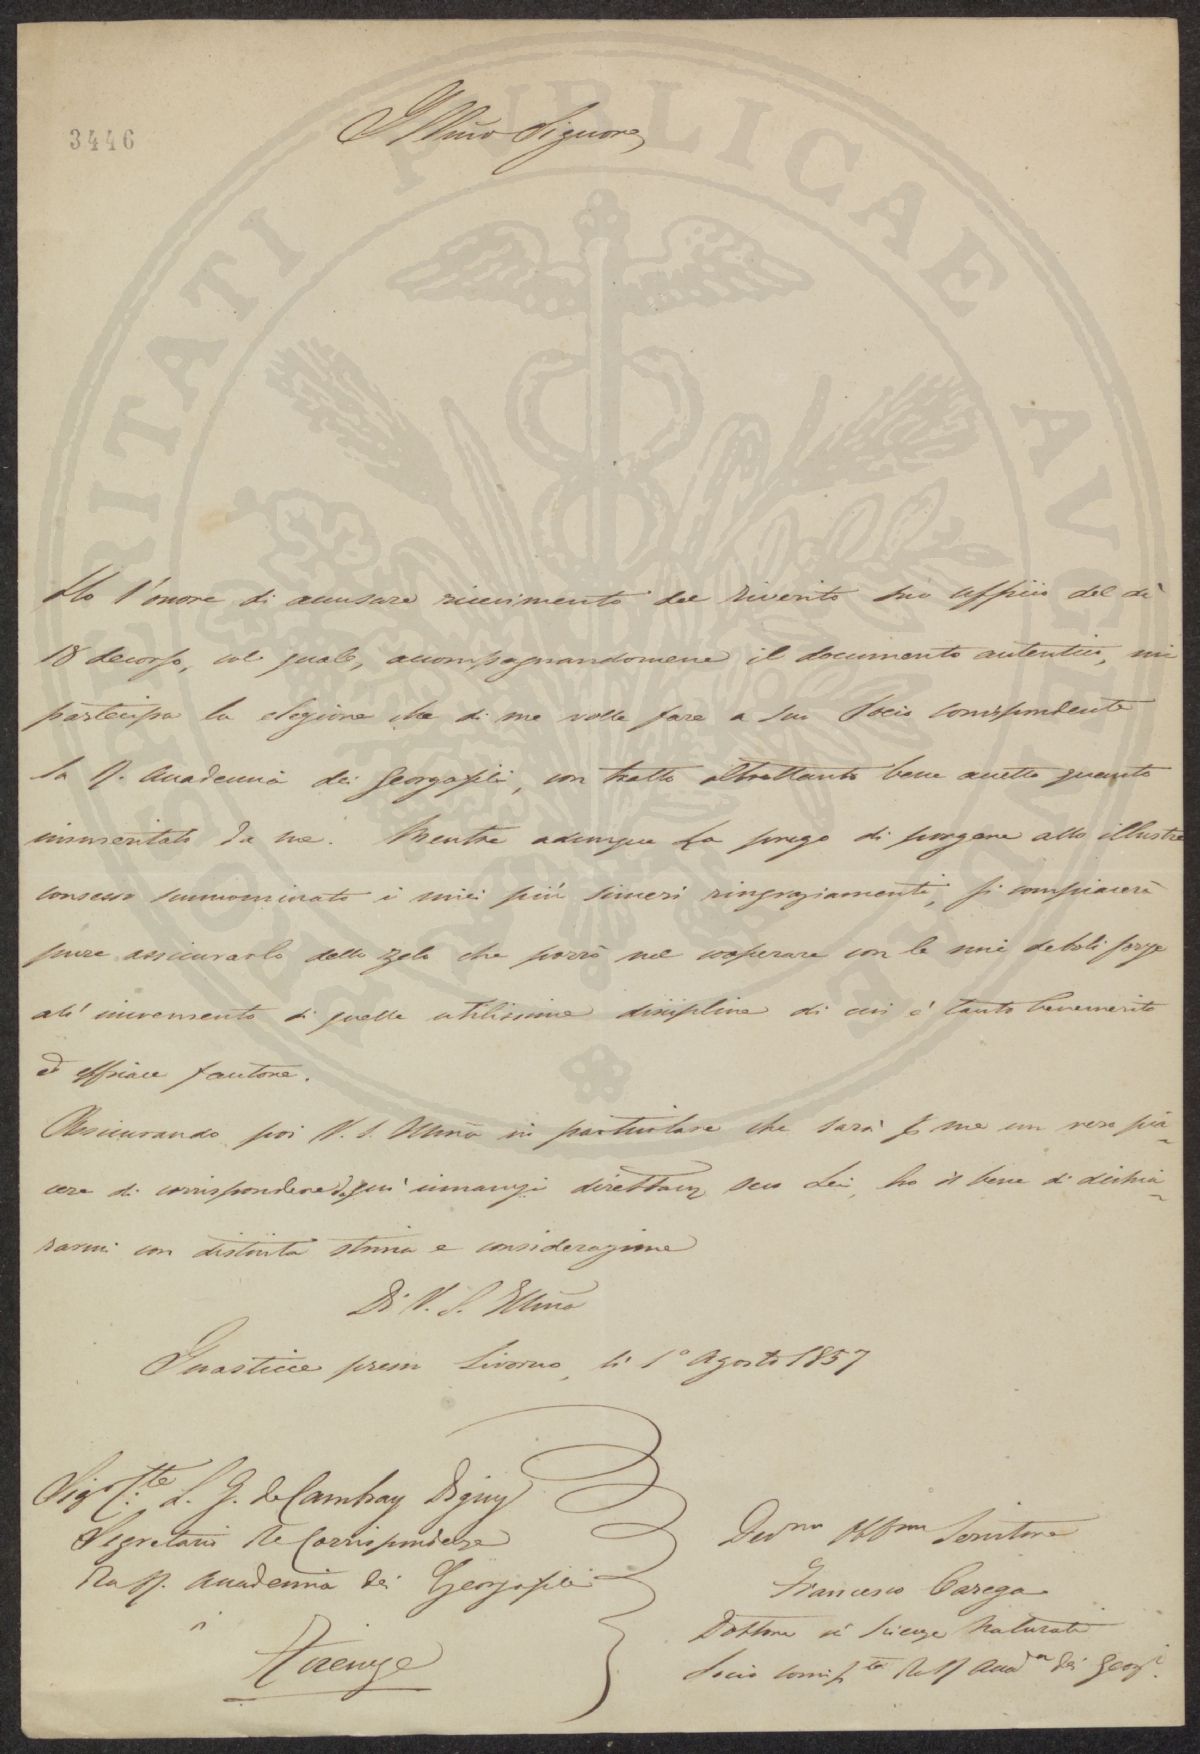 3446
Illmo Signore
Ho l'onore di accusare ricevimento del riverito suo Uffizio del dì
18 decorso, col quale, accompagnandomene il documento autentico, mi
partecipa la elezione che di me volle fare a suo Socio Corrispondente
la R. Accademia dei Georgofili, con tratto altrettanto bene accetto quanto
immeritato da me. Mentre adunque La prego di porgere allo illustre
consesso summominato i miei più sinceri ringraziamenti, si compiacerà
pure assicurarlo dello zelo che porrò nel cooperare con le mie deboli forze
all' incremento di quelle utilissime discipline di cui è tanto benemerito
ed efficace fautore.
Assicurando poi V. S. Illma in particolare che sarà p me un vero pia-
cere di corrispondere da qui innanzi direttam seco Lei, ho il bene di dichia-
rarmi con distinta stima e considerazione
Di V. S. Illma
Guasticce presso Livorno, lì 1° Agosto 1857
Sigr Cte L. G. de Cambray Digny
Segretario de Corrispondenze
della R. Accademia dei Georgofili
Firenze
Devmo Obbmo Servitore
Francesco Carega
Dottore in Scienze Naturali
Socio Corrispte della R Accada dei Georgi.
SPERITATI PUBLICAE AVGENDAE